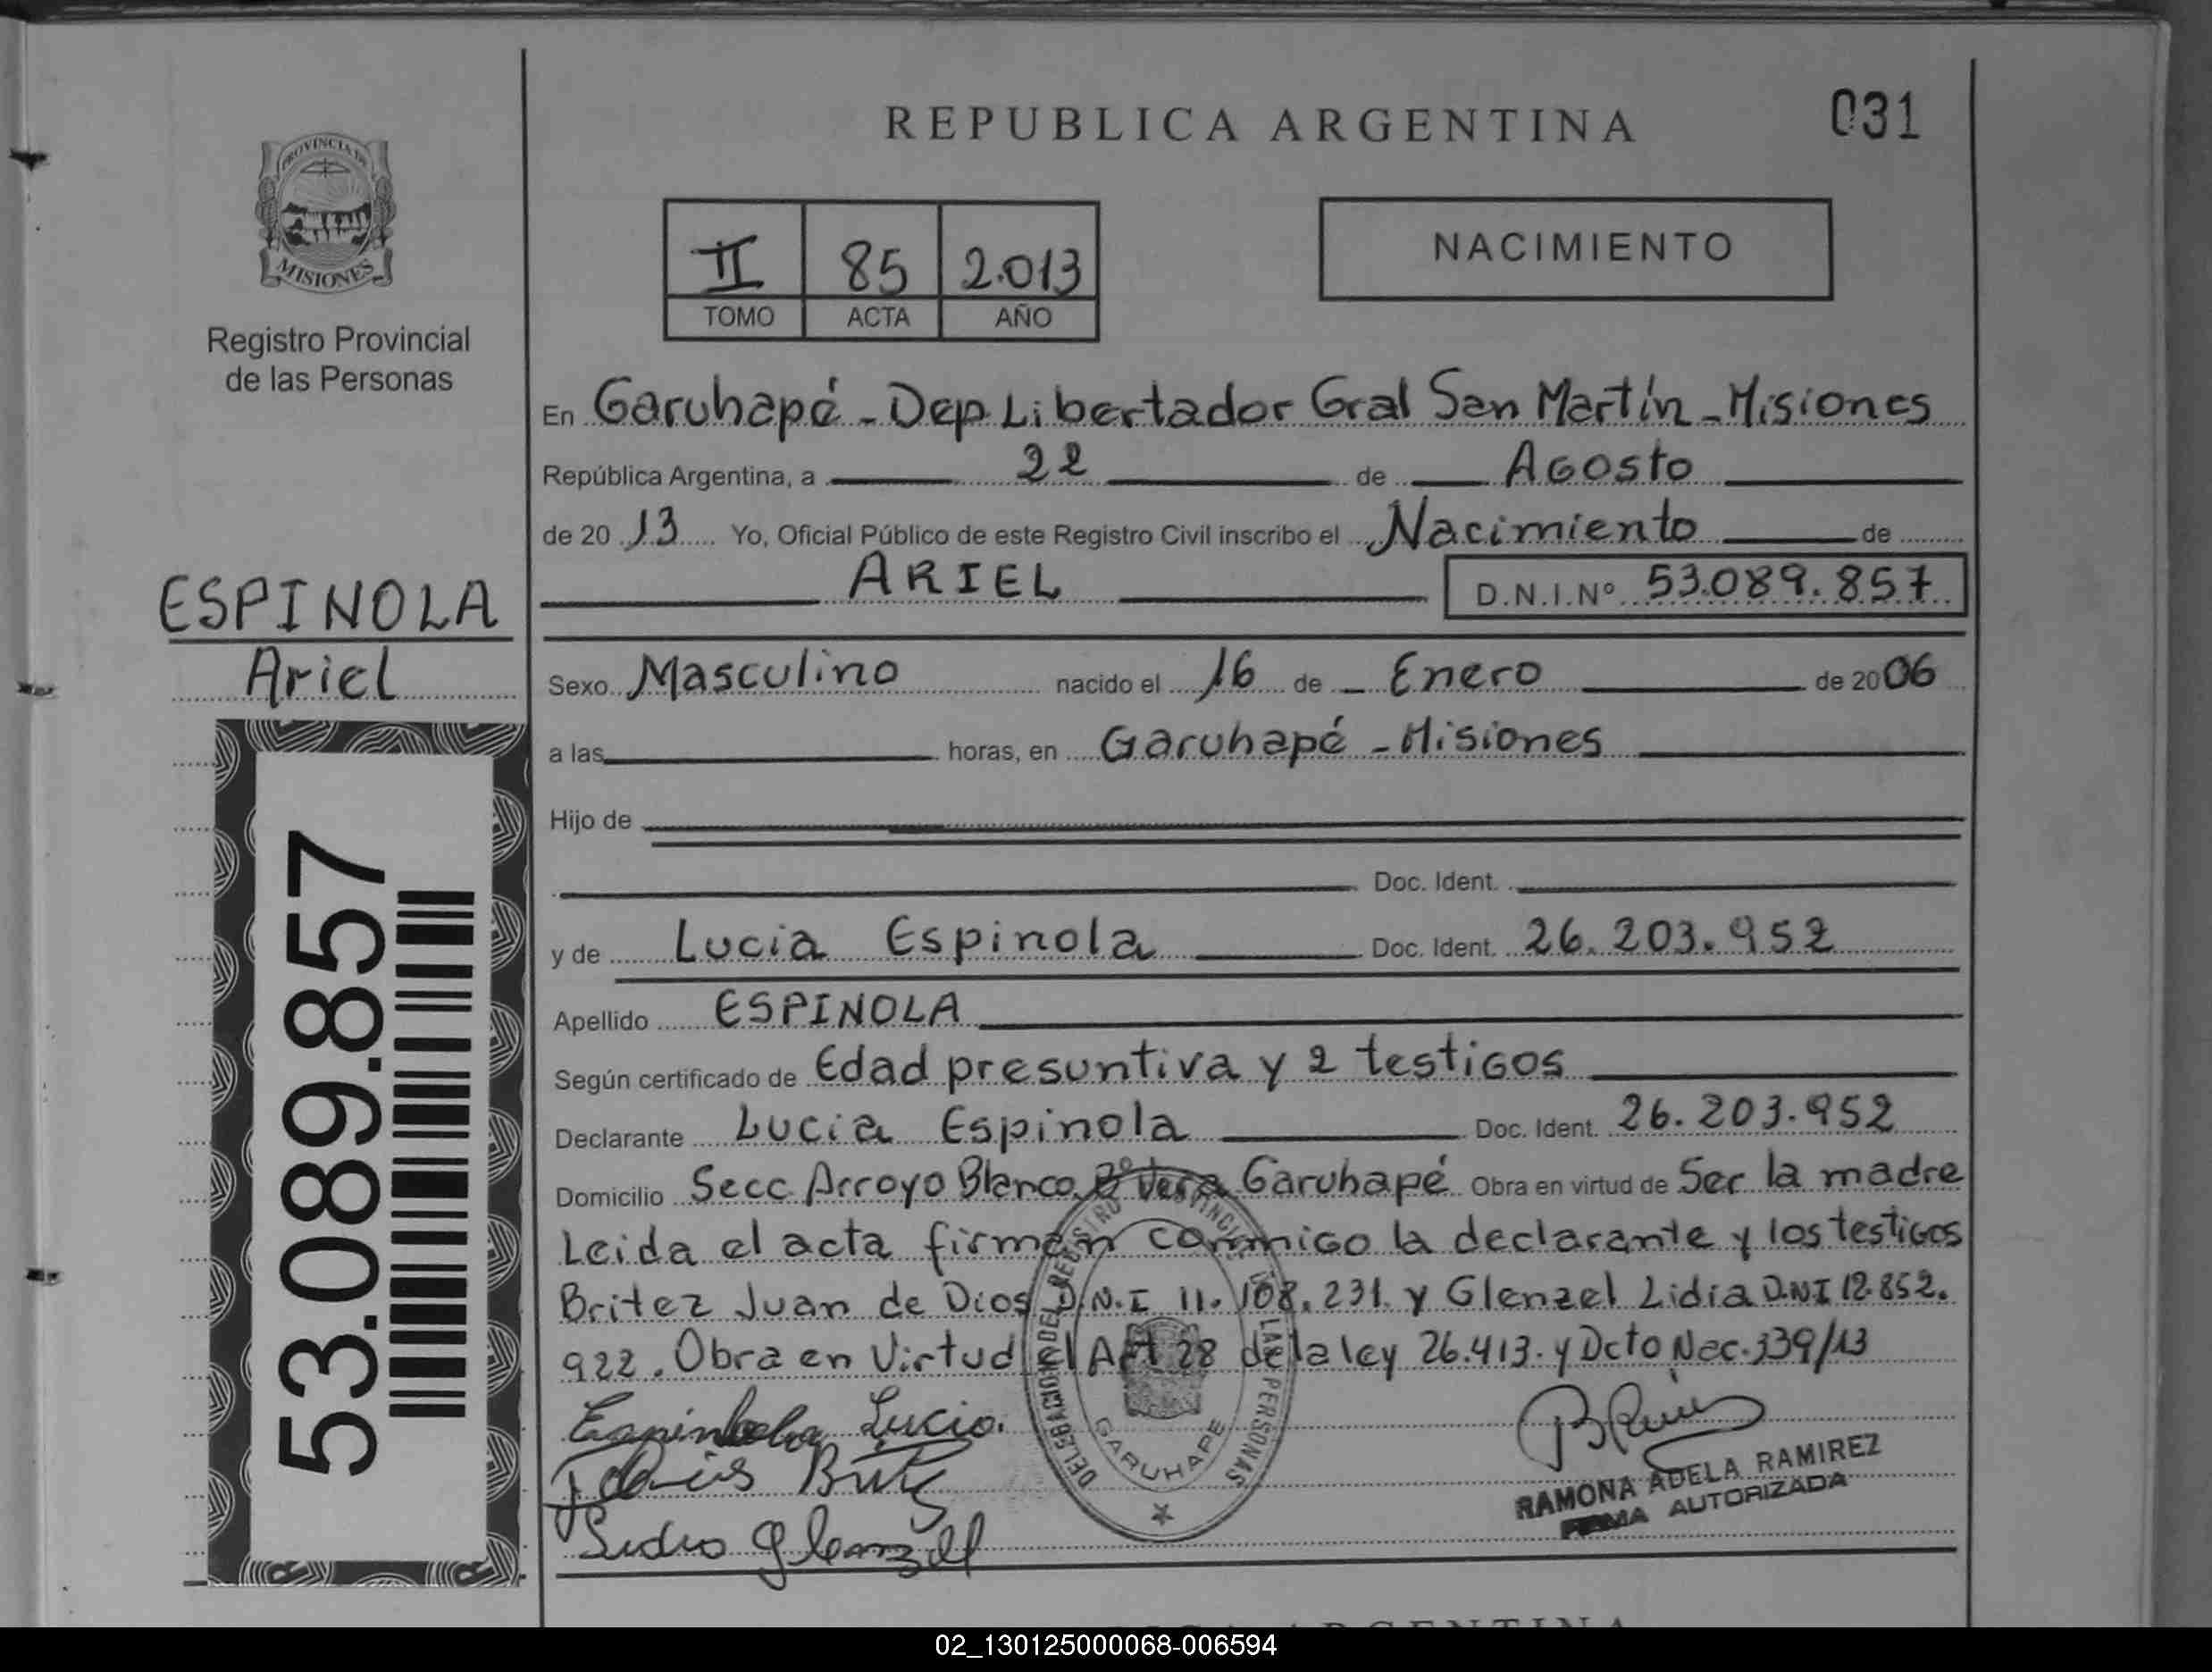 REPUBLICA ARGENTINA
031
PROVINCIA DE
MISIONES
Registro Provincial
de las Personas
II 85 2.013
TOMO ACTA AÑO
NACIMIENTO
En Garuhapé - Dep Libertador Gral San Martín - Misiones
República Argentina, a 22 de AGOSto
de 20 13 Yo, Oficial Público de este Registro Civil inscribo el Nacimiento de
ARIEL D.N.I.Nº 53.089.857
ESPINOLA
Ariel
53.089.857
Sexo Masculino nacido el 16 de Enero de 2006
a las horas, en Garuhapé - Misiones
Hijo de
Doc. Ident.
y de Lucia Espinola Doc. Ident. 26.203.952
Apellido ESPINOLA
Según certificado de Edad presuntiva y 2 testiGos
Declarante Lucia Espinola Doc. Ident. 26.203.952
Domicilio Secc Arroyo Blanco Garuhapé Obra en virtud de Ser la madre
Leida el acta firman conmiGo la declarante y los testiGos
Britez Juan de Dios D.N.I 11.108.231. y Glenzel Lidia D.N.I 12.852.
922. Obra en Virtud Art 28 de la ley 26.413. y Dcto Nac. 339/13
Lucia
Glenzel
DELEGACION DEL REGISTRO PROVINCIAL DE LAS PERSONAS
GARUHAPE
RAMONA ADELA RAMIREZ
FIRMA AUTORIZADA
ARGENTINA
02_130125000068-006594